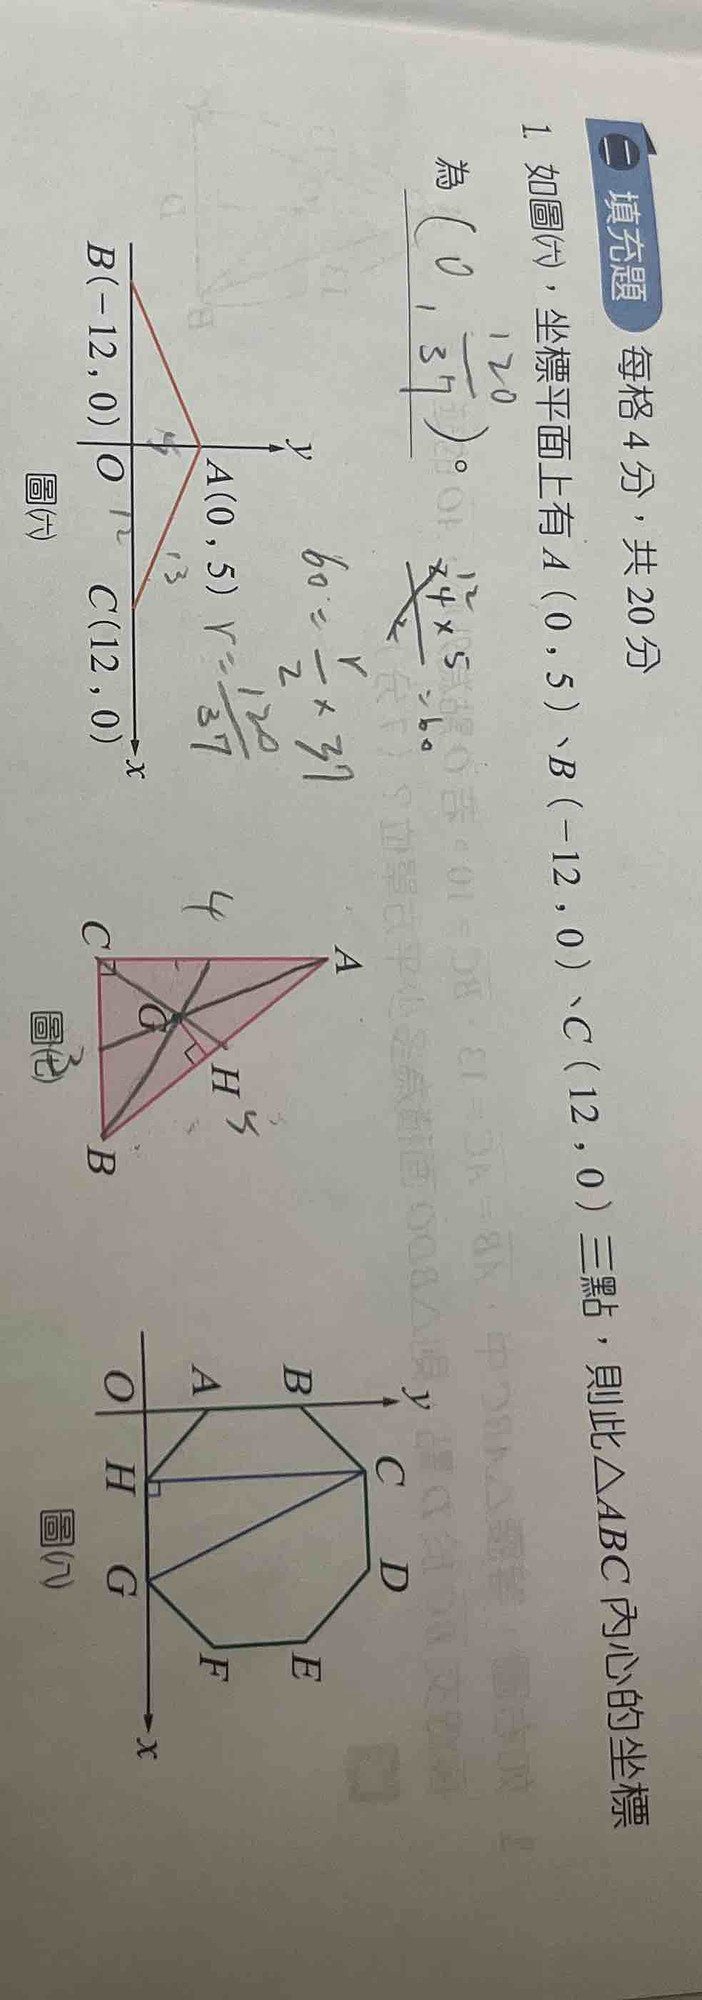 二 填充題 每格4分,共20分
1. 如圖㈥,坐標平面上有A(0,5)、B(-12,0)、C(12,0)三點,則此△ABC內心的坐標
為(0,120/37)。
12
×4×5/2=60
60=r/2×37
r=120/37
y
A(0,5)
5
13
B(-12,0)
O
12
C(12,0)
x
圖㈥
A
4
G
H
5
C
B
3
圖㈦
y
B
C
D
A
E
F
O
H
G
x
圖㈧